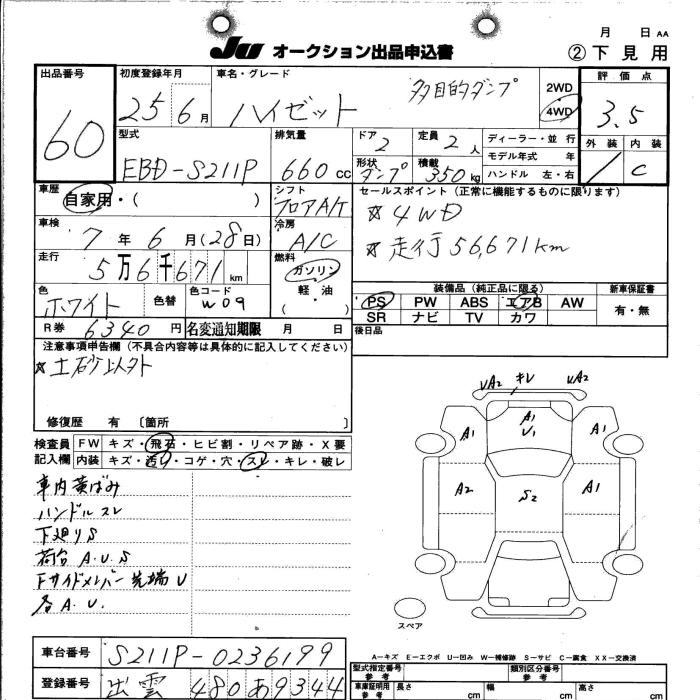 月 日 AA
JU オークション出品申込書 ②下見用
出品番号 60
初度登録年月 25 6月
車名・グレード ハイゼット 多目的ダンプ
2WD
4WD
評価点 3.5
外装 内装 C
型式 EBD-S211P
排気量 660 cc
ドア 2
定員 2人
形状 ダンプ
積載 350kg
ディーラー・並行
モデル年式 年
ハンドル 左・右
車歴 自家用・( )
シフト フロアA/T
車検 7年6月(28日)
冷房 A/C
走行 5万6千671km
燃料 ガソリン
軽・油
( )
色 ホワイト
色替
色コード W09
R券 6340円
名変通知期限 月 日
セールスポイント(正常に機能するものに限ります)
☆4WD
☆走行56,671km
装備品(純正品に限る)
PS PW ABS エアB AW
SR ナビ TV カワ
新車保証書
有・無
後日品
注意事項申告欄(不具合内容等は具体的に記入してください)
☆土砂以外
修復歴 有 〔箇所 〕
検査員記入欄
FW キズ・飛石・ヒビ割・リペア跡・X要
内装 キズ・汚れ・コゲ・穴・スレ・キレ・破レ
車内黄ばみ
ハンドルスレ
下廻りS
荷台A.U.S
Fサイドメンバー先端U
各A.U.
UA2 キレ UA2
A1 A1 A1
U1
A2 S2 A1
スペア
A-キズ E-エクボ U-凹み W-補修跡 S-サビ C-腐食 XX-交換済
車台番号 S211P-0236199
登録番号 出雲 480あ9344
型式指定番号
参考
類別区分番号
参考
車庫証明用
参考
長さ cm 幅 cm 高さ cm